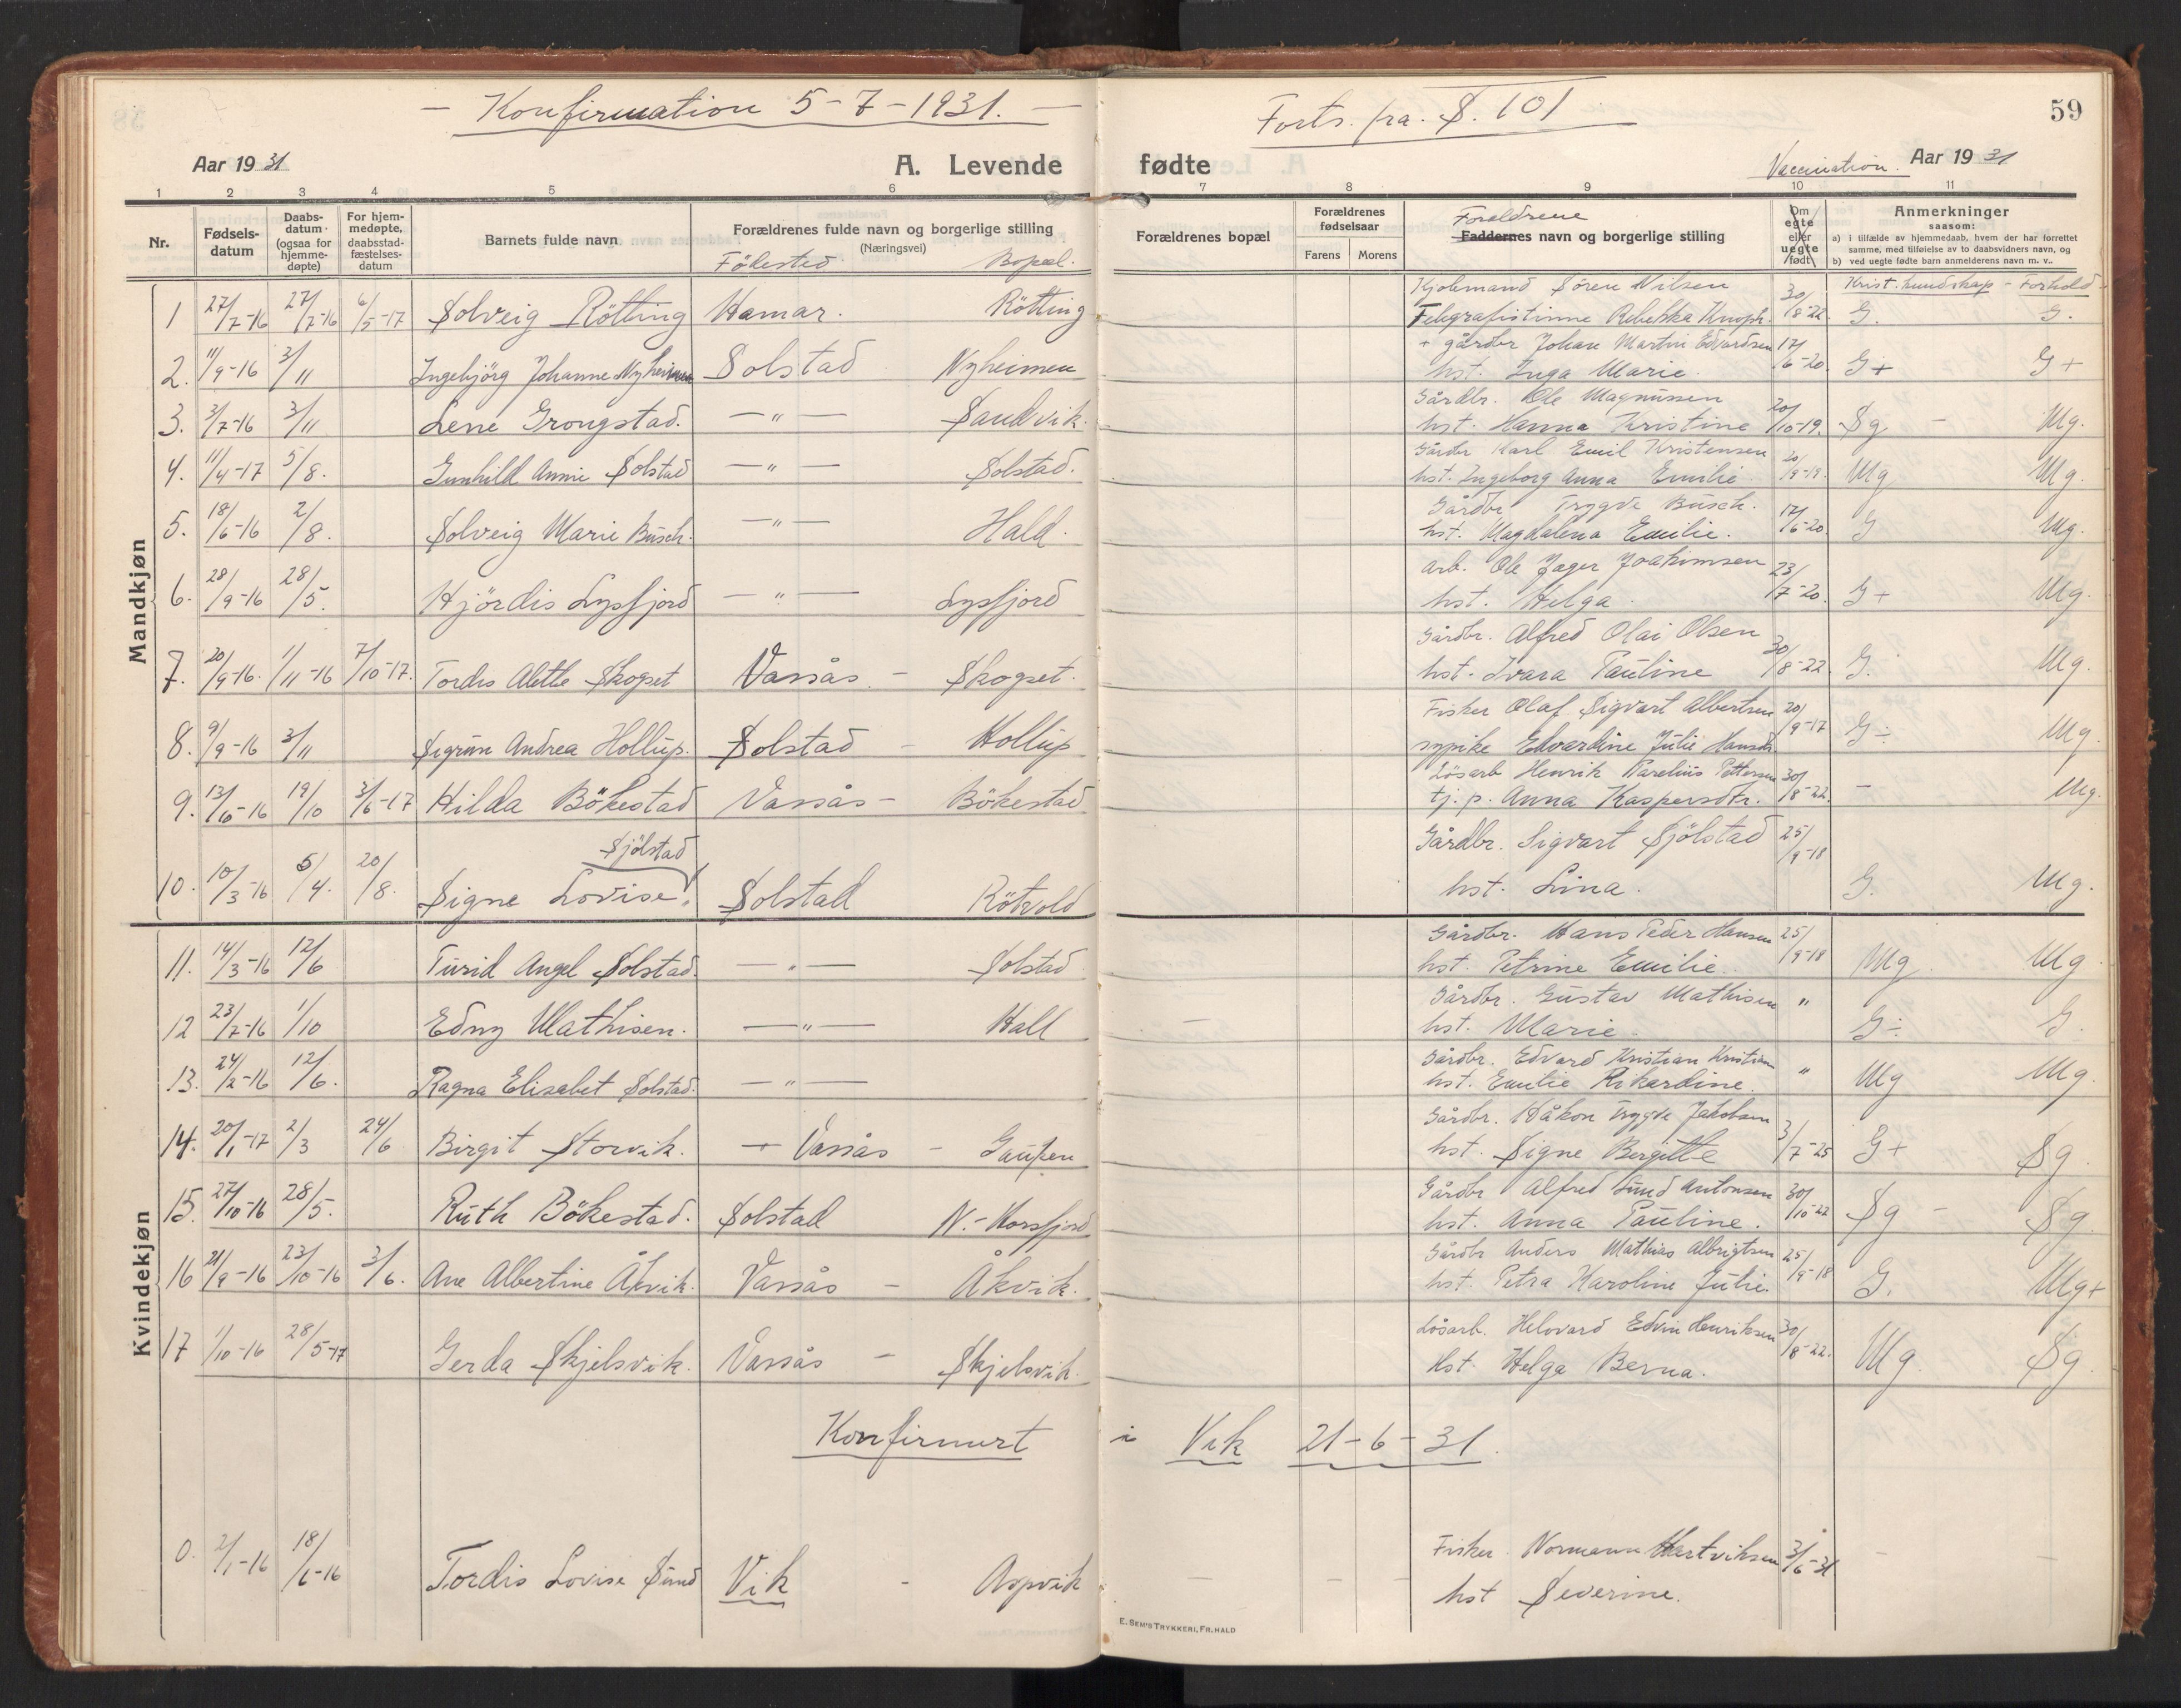 — Konfirmation 5-7-1931. —
Forts. fra. S. 101
59
Aar 1931
A. Levende fødte
Vaccination.
Aar 1931
1 2 3 4 5 6 7 8 9 10 11
Nr.
Fødsels-datum
Daabs-datum (ogsaa for hjemme-døpte)
For hjem-medøpte, daabsstad-fæstelses-datum
Barnets fulde navn
Forældrenes fulde navn og borgerlige stilling (Næringsvei)
Födested Bopæl.
Forældrenes bopæl
Forældrenes fødselsaar
Farens Morens
Foreldrene
Faddernes navn og borgerlige stilling
Om egte eller uegte født
Anmerkninger
saasom:
a) i tilfælde av hjemmedaab, hvem der har forrettet samme, med tilføielse av to daabsvidners navn, og
b) ved uegte fødte barn anmelderens navn m. v..
Krist. kundskap - Forhold
Mandkjøn
1 27/7-16 27/7-16 6/5-17 Solveig Rötting Hamar. Rötting
Kjolemand Sören Nilsen
Telegrafistinne Rebekka Knoph. 30/8-22 G. G.
2. 11/9-16 3/11 Ingebjörg Johanne Nyheimen Solstad Nyheimen
+ gårdbr Johan Martin Edvardsen
hst. Inga Marie. 17/6-20 G+ G+
3. 3/7-16 3/11 Lene Grongstad. —"— Sandvik.
Gårdbr. Ole Magnussen
hst. Hanna Kristine 20/10-19. Sg - Mg.
4. 11/4-17 5/8. Gunhild Annie Solstad —"— Solstad.
Gårdbr Karl Emil Kristensen
hst. Ingeborg Anna Emilie 20/9-19. Mg Mg.
5. 18/6-16 2/8. Solveig Marie Busch. —"— Hald.
Gårdbr Trygve Busch.
hst. Magdalena Emilie. 17/6-20 G Mg.
6. 28/9-16 28/5. Hjördis Lysfjord —"— Lysfjord
arb. Ole Jager Joakimsen
hst. Helga. 23/7-20. G+ Mg.
7. 20/9-16. 1/11-16 7/10-17. Tordis Alette Skogset Vassås - Skogset.
Gårdbr. Alfred Olai Olsen
hst. Ivara Pauline 30/8-22 G. Mg.
8. 9/9-16 3/11 Sigrun Andrea Hollup. Solstad - Hollup
Fisker Olaf Sigvart Albertsen
sypike Edvardine Julie Hansdr. 20/9-17 G÷ Mg.
9. 13/6-16 19/10 3/6-17 Hilda Bökestad Vassås - Bökestad
Lösarb Henrik Parelius Pettersen
tj.p. Anna Kaspersdtr. 30/8-22. - Mg.
Sjölstad
10. 10/3-16 5/4. 20/8. Signe Lovise Solstad Rötvold
Gårdbr. Sigvart Sjölstad
hst. Lina. 25/9-18 G. Mg.
Kvindekjøn
11. 14/3-16 12/6 Turid Angel Solstad. —"— Solstad
Gårdbr. Hans Peder Hansen
hst. Petrine Emilie. 25/9-18 Mg Mg
12 23/7-16 1/10 Edny Mathisen. —"— Hall
Gårdbr. Gustav Mathisen
hst. Marie " G÷ G.
13. 24/2-16 12/6. Ragna Elisabet Solstad. —"—
Gårdbr. Edvard Kristian Kristian
hst. Emilie Rikardine. " Mg Mg.
14. 20/1-17 2/3 24/6 Birgit Storvik. + Vassås - Gaupen
Gårdbr. Håkon Trygve Jakobsen
hst. Signe Bergitte 3/7-25 G+ Sg.
15. 27/10-16 28/5. Ruth Bökestad. Solstad N.-Horsfjord
Gårdbr Alfred Lund Antonsen
hst. Anna Pauline. 30/10-22 Sg - Sg.
16 21/9-16 23/10-16 3/6. Ane Albertine Åkvik. Vassås - Åkvik.
Gårdbr Anders Mathias Albrigtsen
hst. Petra Karoline Julie. 25/9-18 G. Mg+
17 1/10-16 28/5-17 Gerda Skjelsvik. Vassås - Skjelsvik.
Lösarb. Helovard Edvin Henriksen
Hst. Helga Berna. 30/8-22. Mg. Sg.
Konfirmert i Vik 21-6-31.
0. 2/1-16 18/6-16 Tordis Lovise Sund Vik - Aspvik
Fisker Normann Hartviksen
hst Severine. 3/6-31 - -
E. Sem's Trykkeri, Fr.hald